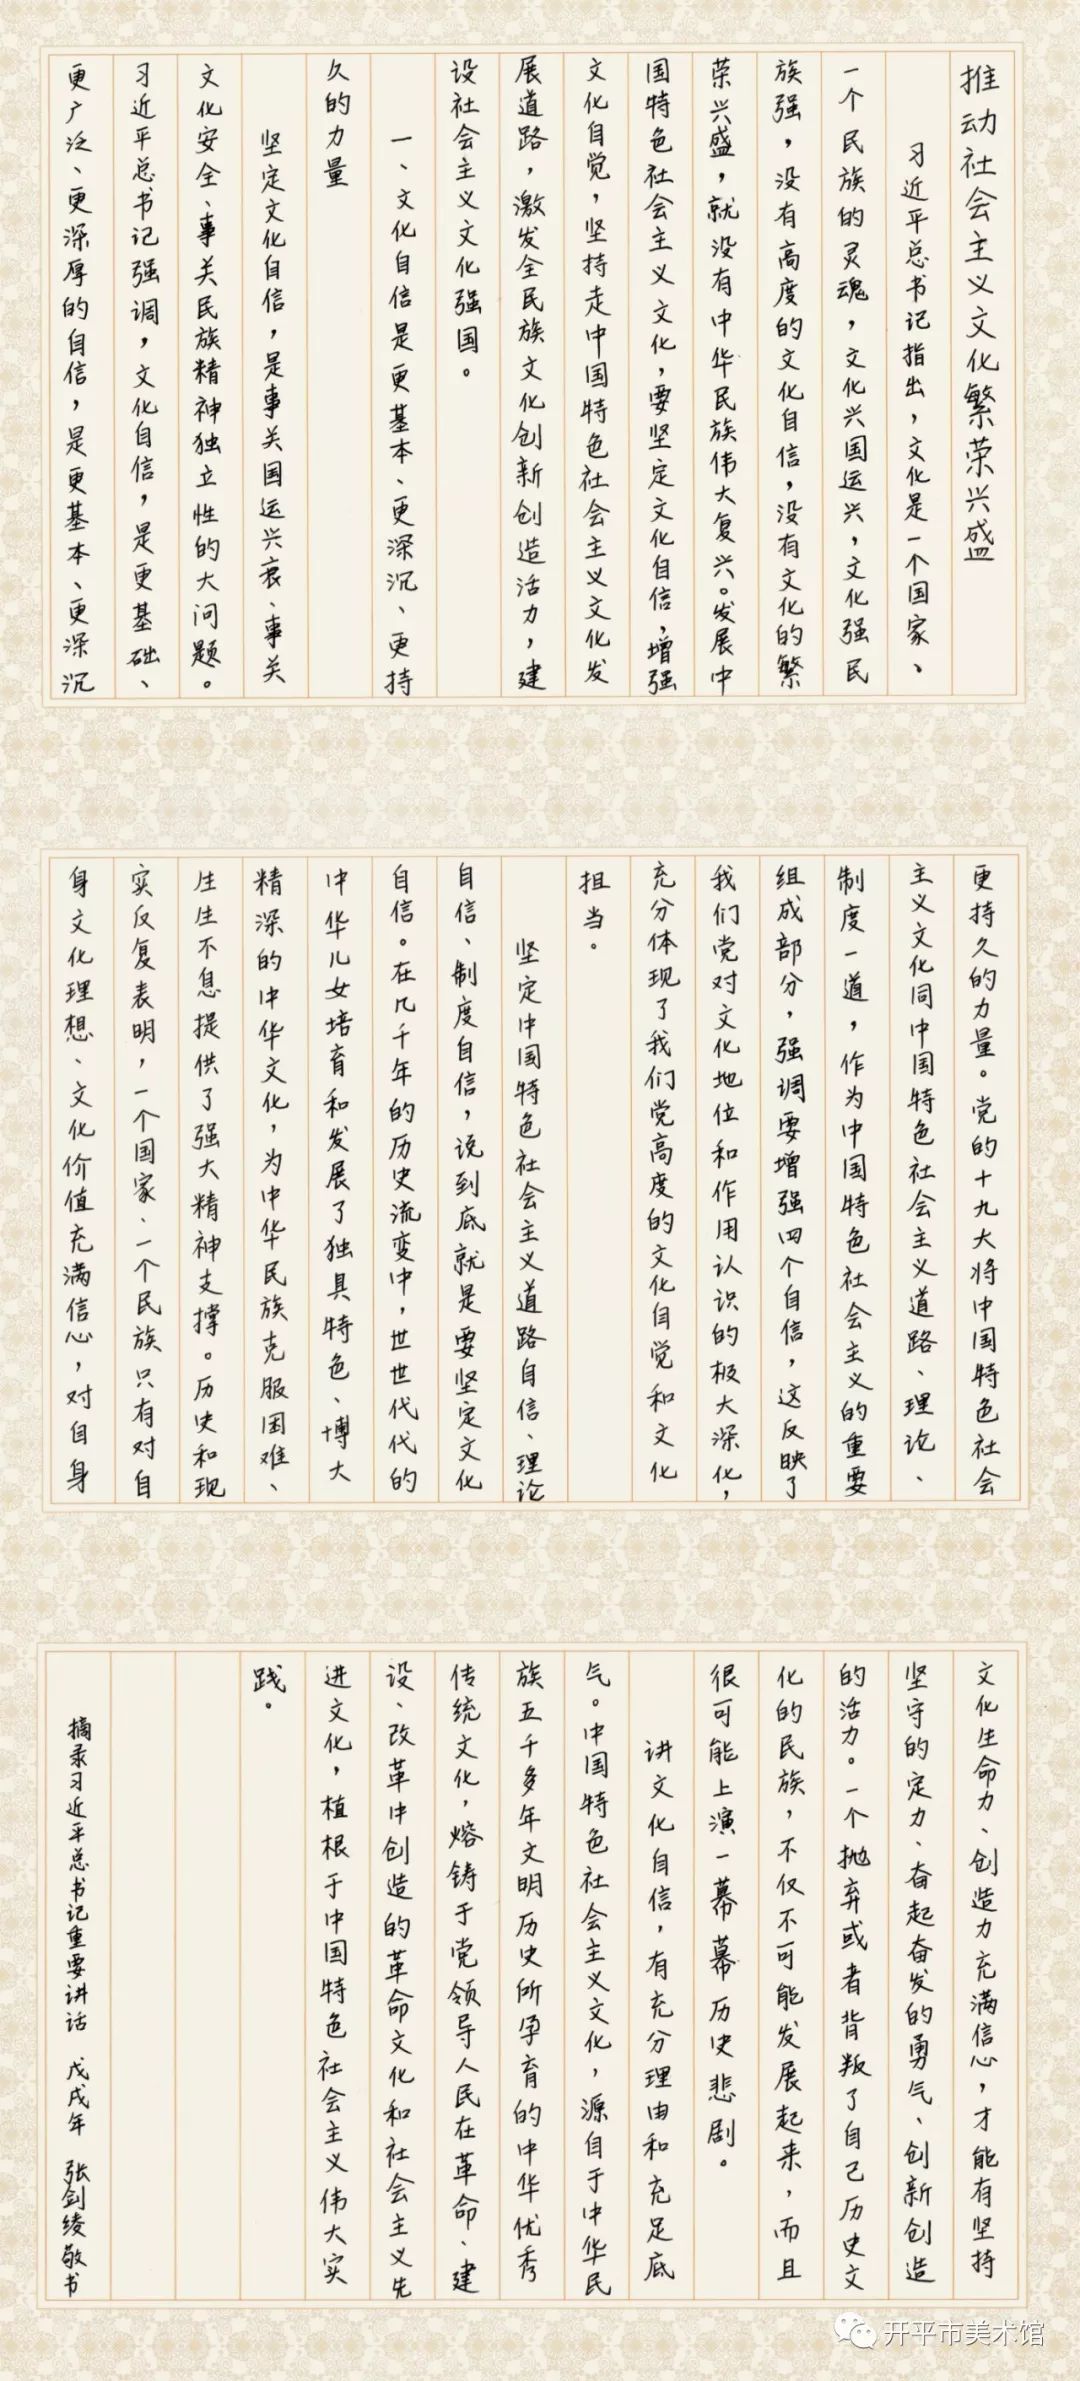 推动社会主义文化繁荣兴盛
习近平总书记指出，文化是一个国家、
一个民族的灵魂，文化兴国运兴，文化强民
族强，没有高度的文化自信，没有文化的繁
荣兴盛，就没有中华民族伟大复兴。发展中
国特色社会主义文化，要坚定文化自信，增强
文化自觉，坚持走中国特色社会主义文化发
展道路，激发全民族文化创新创造活力，建
设社会主义文化强国。
一、文化自信是更基本、更深沉、更持
久的力量
坚定文化自信，是事关国运兴衰、事关
文化安全、事关民族精神独立性的大问题。
习近平总书记强调，文化自信，是更基础、
更广泛、更深厚的自信，是更基本、更深沉
更持久的力量。党的十九大将中国特色社会
主义文化同中国特色社会主义道路、理论、
制度一道，作为中国特色社会主义的重要
组成部分，强调要增强四个自信，这反映了
我们党对文化地位和作用认识的极大深化，
充分体现了我们党高度的文化自觉和文化
担当。
坚定中国特色社会主义道路自信、理论
自信、制度自信，说到底就是要坚定文化
自信。在几千年的历史流变中，世世代代的
中华儿女培育和发展了独具特色、博大
精深的中华文化，为中华民族克服困难、
生生不息提供了强大精神支撑。历史和现
实反复表明，一个国家、一个民族只有对自
身文化理想、文化价值充满信心，对自身
文化生命力、创造力充满信心，才能有坚持
坚守的定力、奋起奋发的勇气、创新创造
的活力。一个抛弃或者背叛了自己历史文
化的民族，不仅不可能发展起来，而且
很可能上演一幕幕历史悲剧。
讲文化自信，有充分理由和充足底
气。中国特色社会主义文化，源自于中华民
族五千多年文明历史所孕育的中华优秀
传统文化，熔铸于党领导人民在革命、建
设、改革中创造的革命文化和社会主义先
进文化，植根于中国特色社会主义伟大实
践。
摘录习近平总书记重要讲话 戊戌年 张剑绫敬书
开平市美术馆